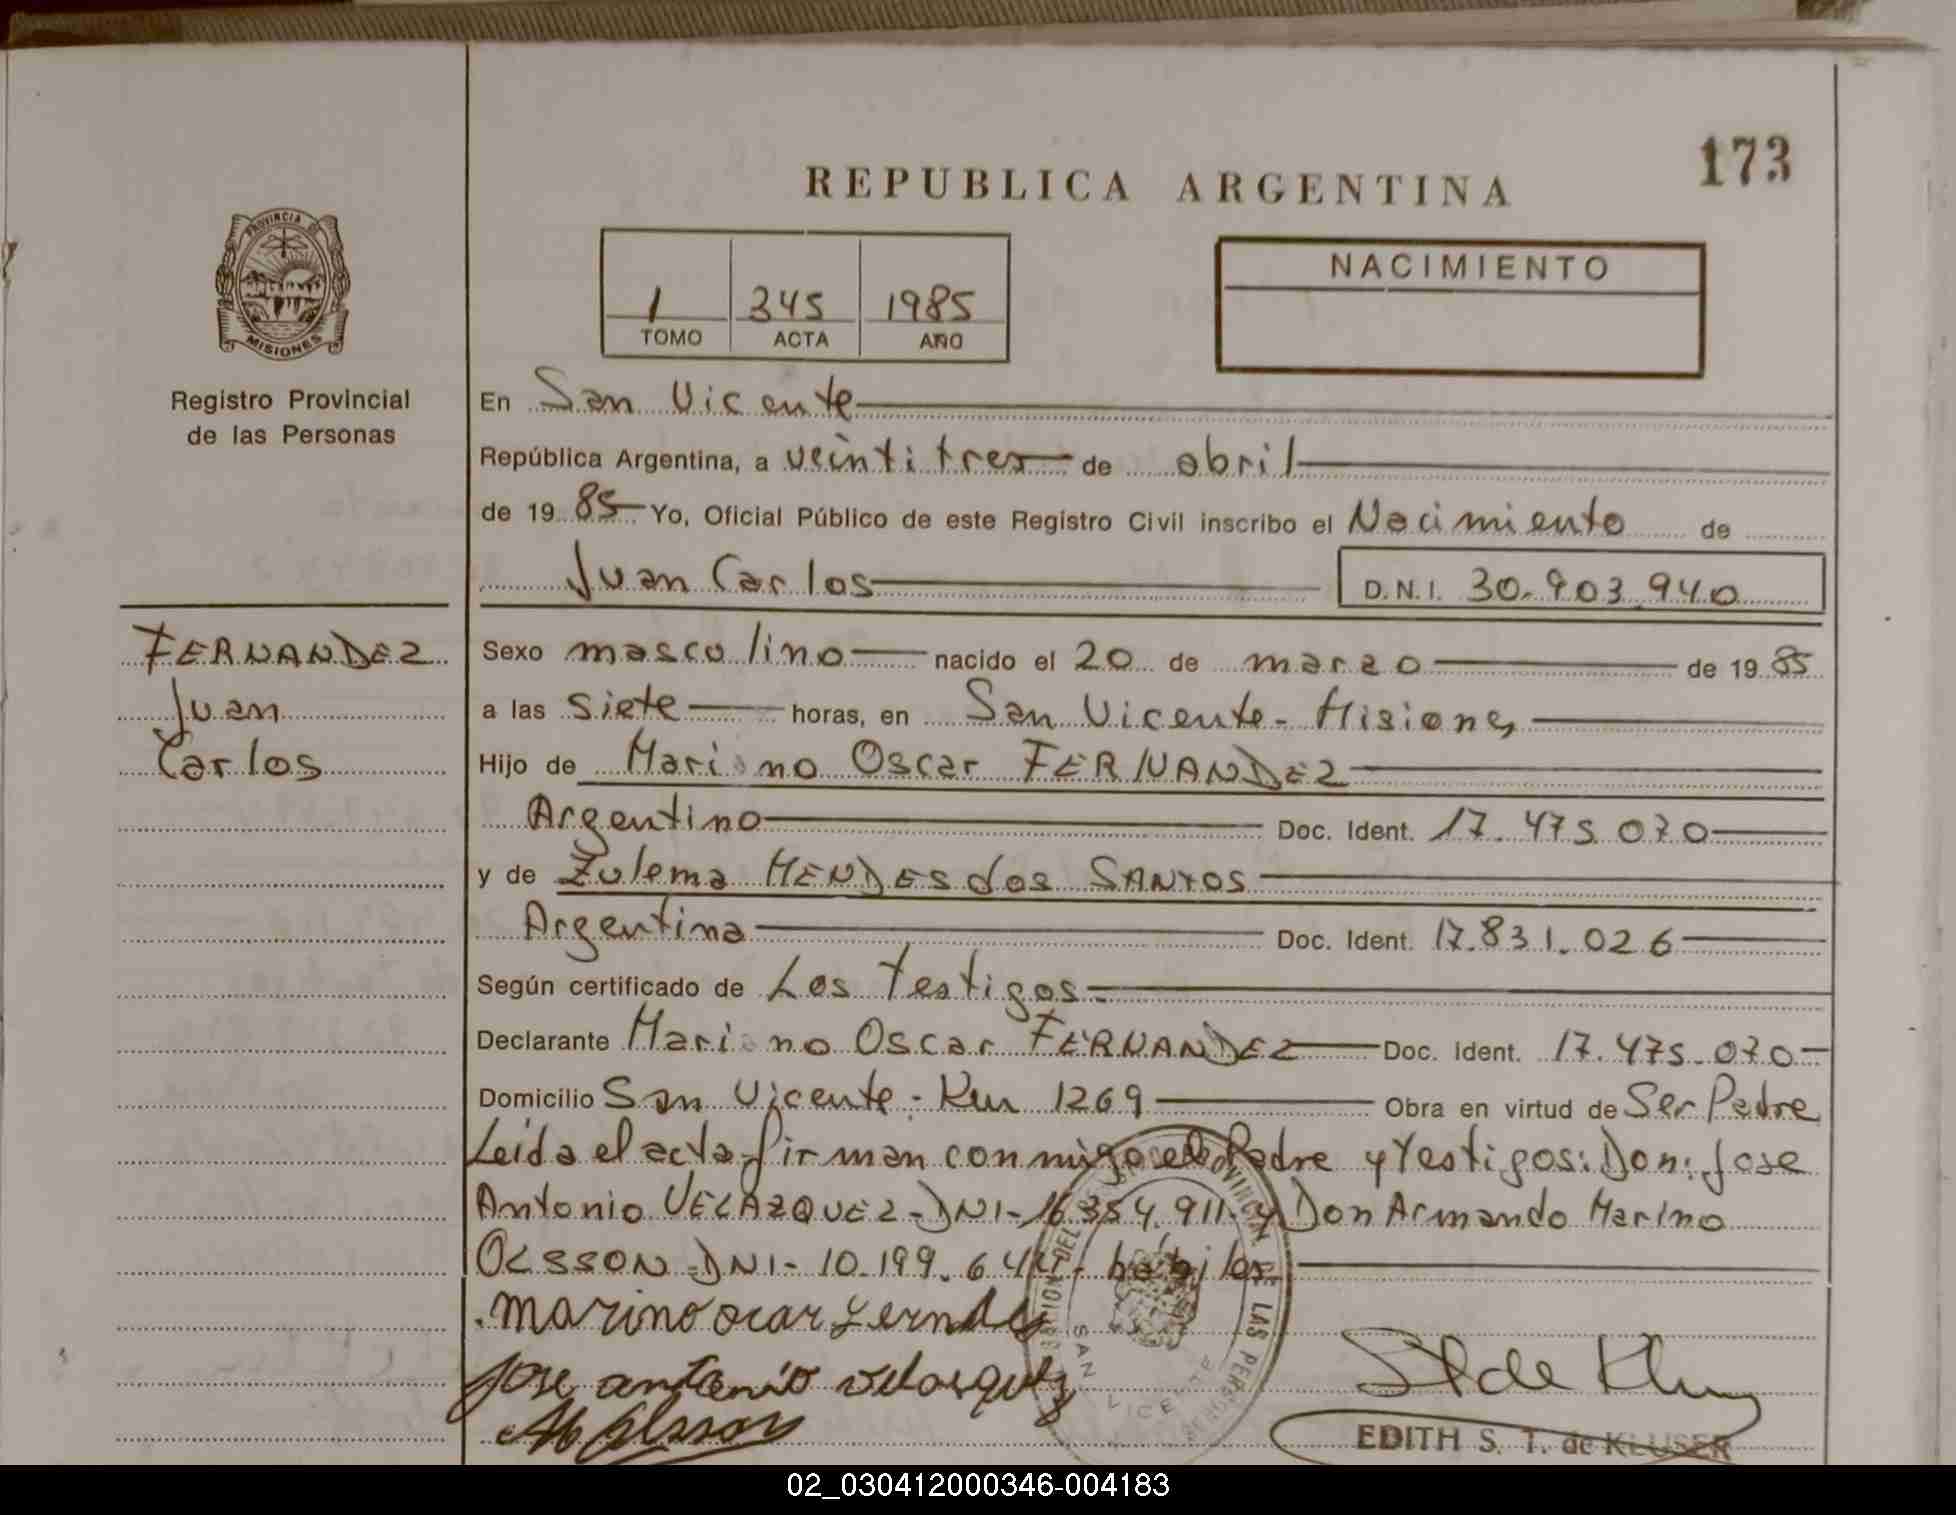 173
REPUBLICA ARGENTINA
PROVINCIA DE
MISIONES
Registro Provincial
de las Personas
1 345 1985
TOMO ACTA AÑO
NACIMIENTO
En San Vicente
República Argentina, a veintitres de abril
de 19 85 Yo, Oficial Público de este Registro Civil inscribo el Nacimiento de
Juan Carlos D.N.I. 30.903.940
FERNANDEZ
Juan
Carlos
Sexo masculino nacido el 20 de marzo de 19 85
a las siete horas, en San Vicente - Misiones
Hijo de Mari no Oscar FERNANDEZ
Argentino Doc. Ident. 17.475.070
y de Zulema MENDES dos SANTOS
Argentina Doc. Ident. 17.831.026
Según certificado de Los Testigos.
Declarante Mari no Oscar FERNANDEZ Doc. Ident. 17.475.070
Domicilio San Vicente - Km 1269 Obra en virtud de Ser Padre
Leida el acta firman conmigo el Padre y Testigos: Don: Jose
Antonio VELAZQUEZ - DNI - 16.354.911 - y Don Armando Marino
OLSSON - DNI - 10.199.644 - hábiles
marino ocar
Jose antonio velasquez
SAN VICENTE
LAS PERSONAS
EDITH S. T. de KLUSER
02_030412000346-004183